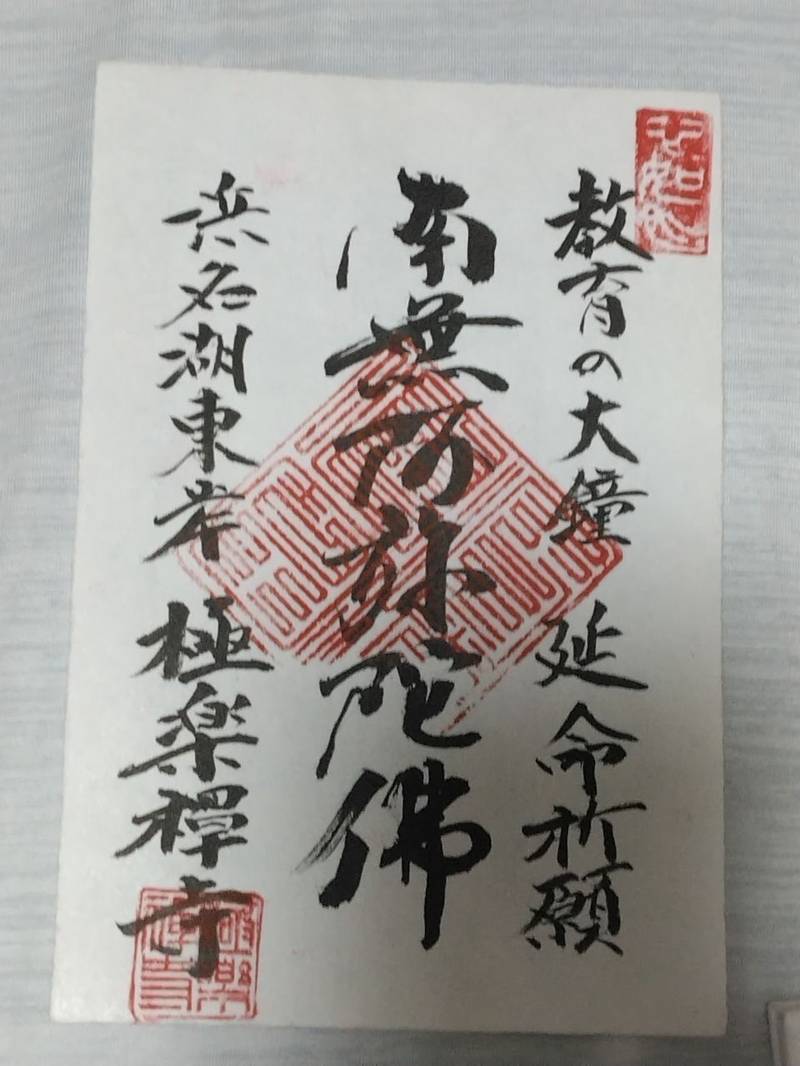 教育の大鐘 延命祈願
南無阿弥陀佛
浜名湖東岸 極楽禅寺